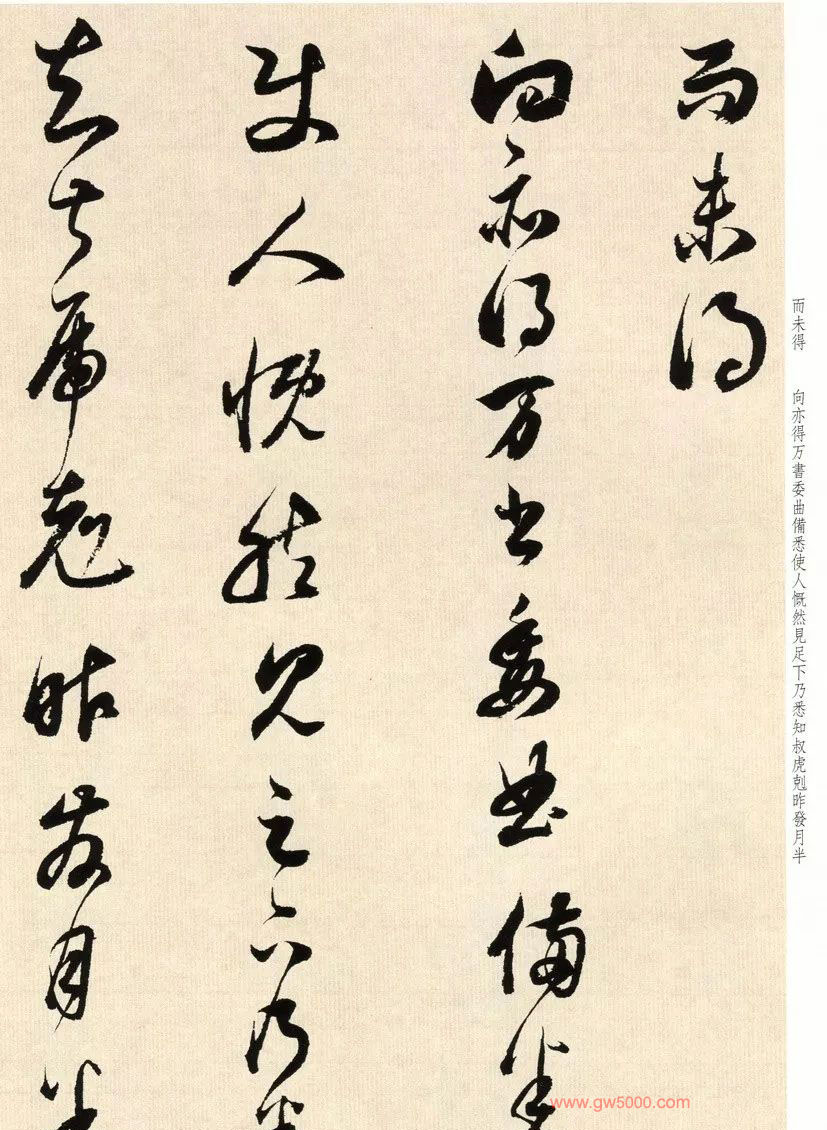 而未得
向亦得万書委曲備悉
使人慨然見足下乃悉
知叔虎剋昨發月半
而未得　向亦得万書委曲備悉使人慨然見足下乃悉知叔虎剋昨發月半
www.gw5000.com